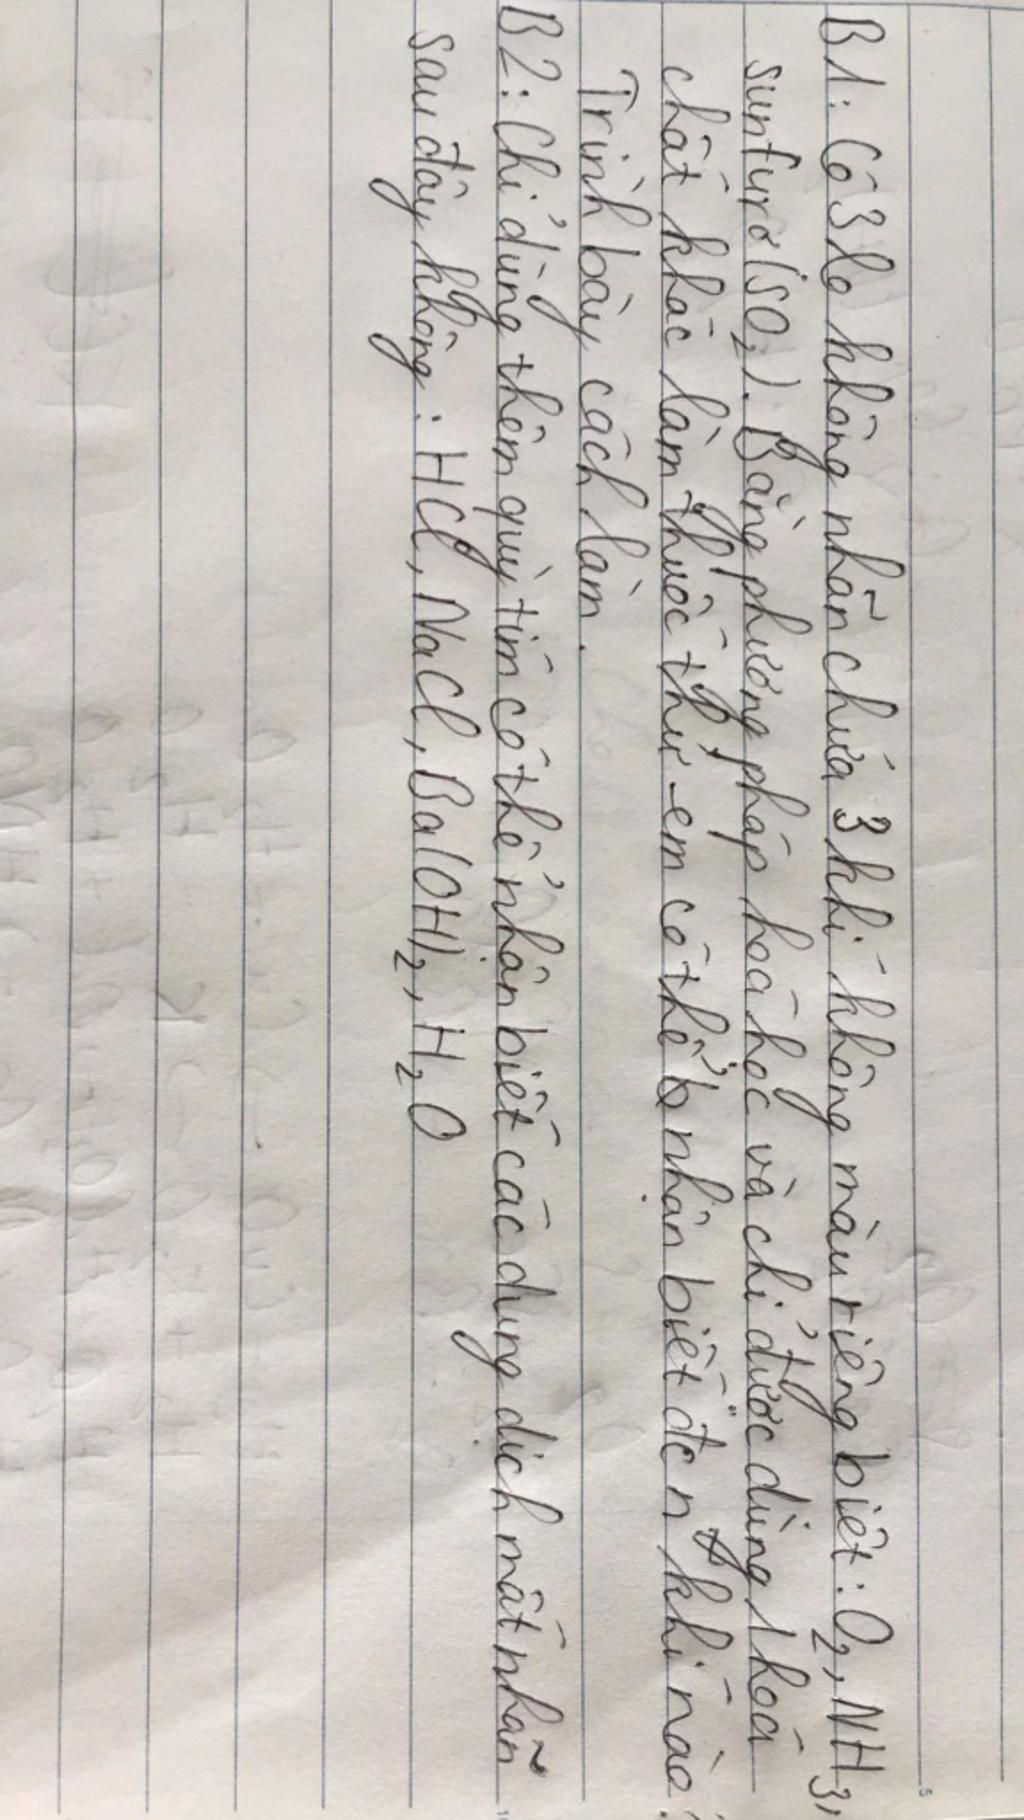 B1: Có 3 lọ không nhãn chứa 3 khí không màu riêng biệt: O2, NH3,
sunfurơ (SO2). Bằng phương pháp hoá học và chỉ được dùng 1 hoá
chất khác làm thuốc thử em có thể nhận biết đc n~ khí nào?
Trình bày cách làm.
B2: Chỉ dùng thêm quỳ tím có thể nhận biết các dung dịch mất nhãn
sau đây không: HCl, NaCl, Ba(OH)2, H2O